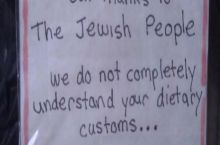 The Jewish People
we do not completely
understand your dietary
customs...